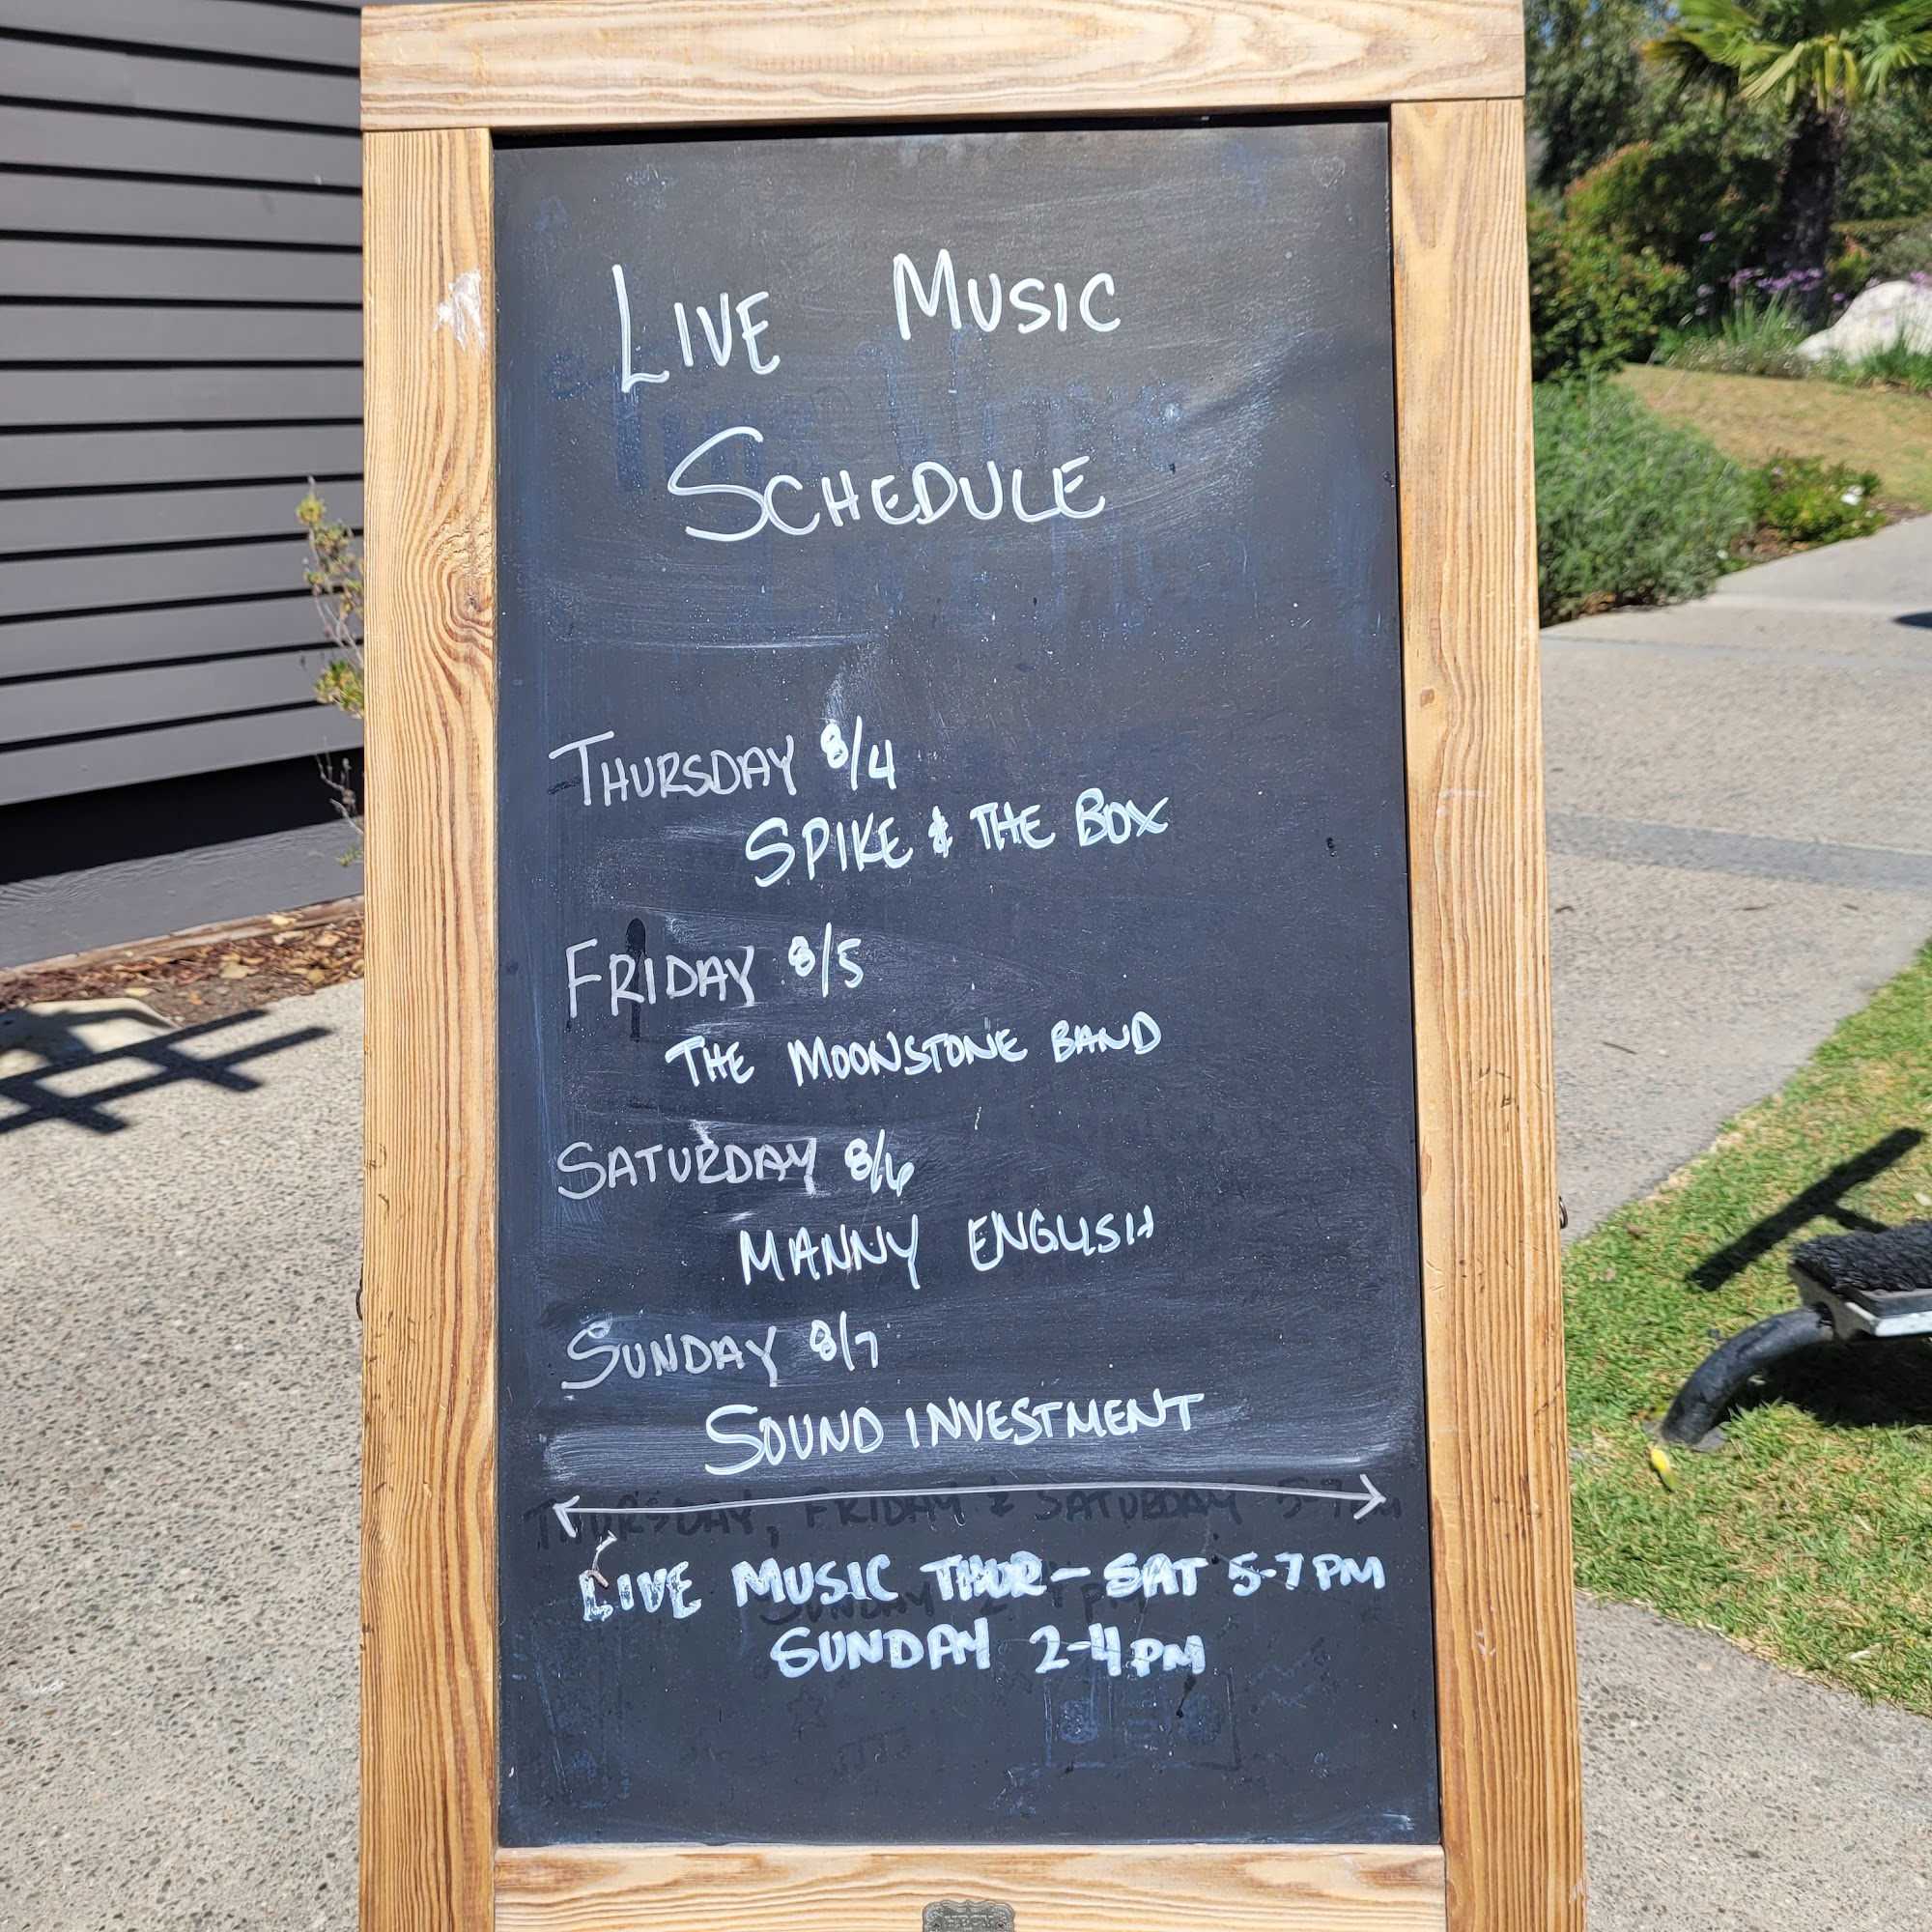 LIVE MUSIC
SCHEDULE
THURSDAY 8/4
SPIKE & THE BOX
FRIDAY 8/5
THE MOONSTONE BAND
SATURDAY 8/6
MANNY ENGLISH
SUNDAY 8/7
SOUND INVESTMENT
THURSDAY, FRIDAY & SATURDAY 5-7pm
LIVE MUSIC THUR - SAT 5-7 PM
SUNDAY 2-4 PM